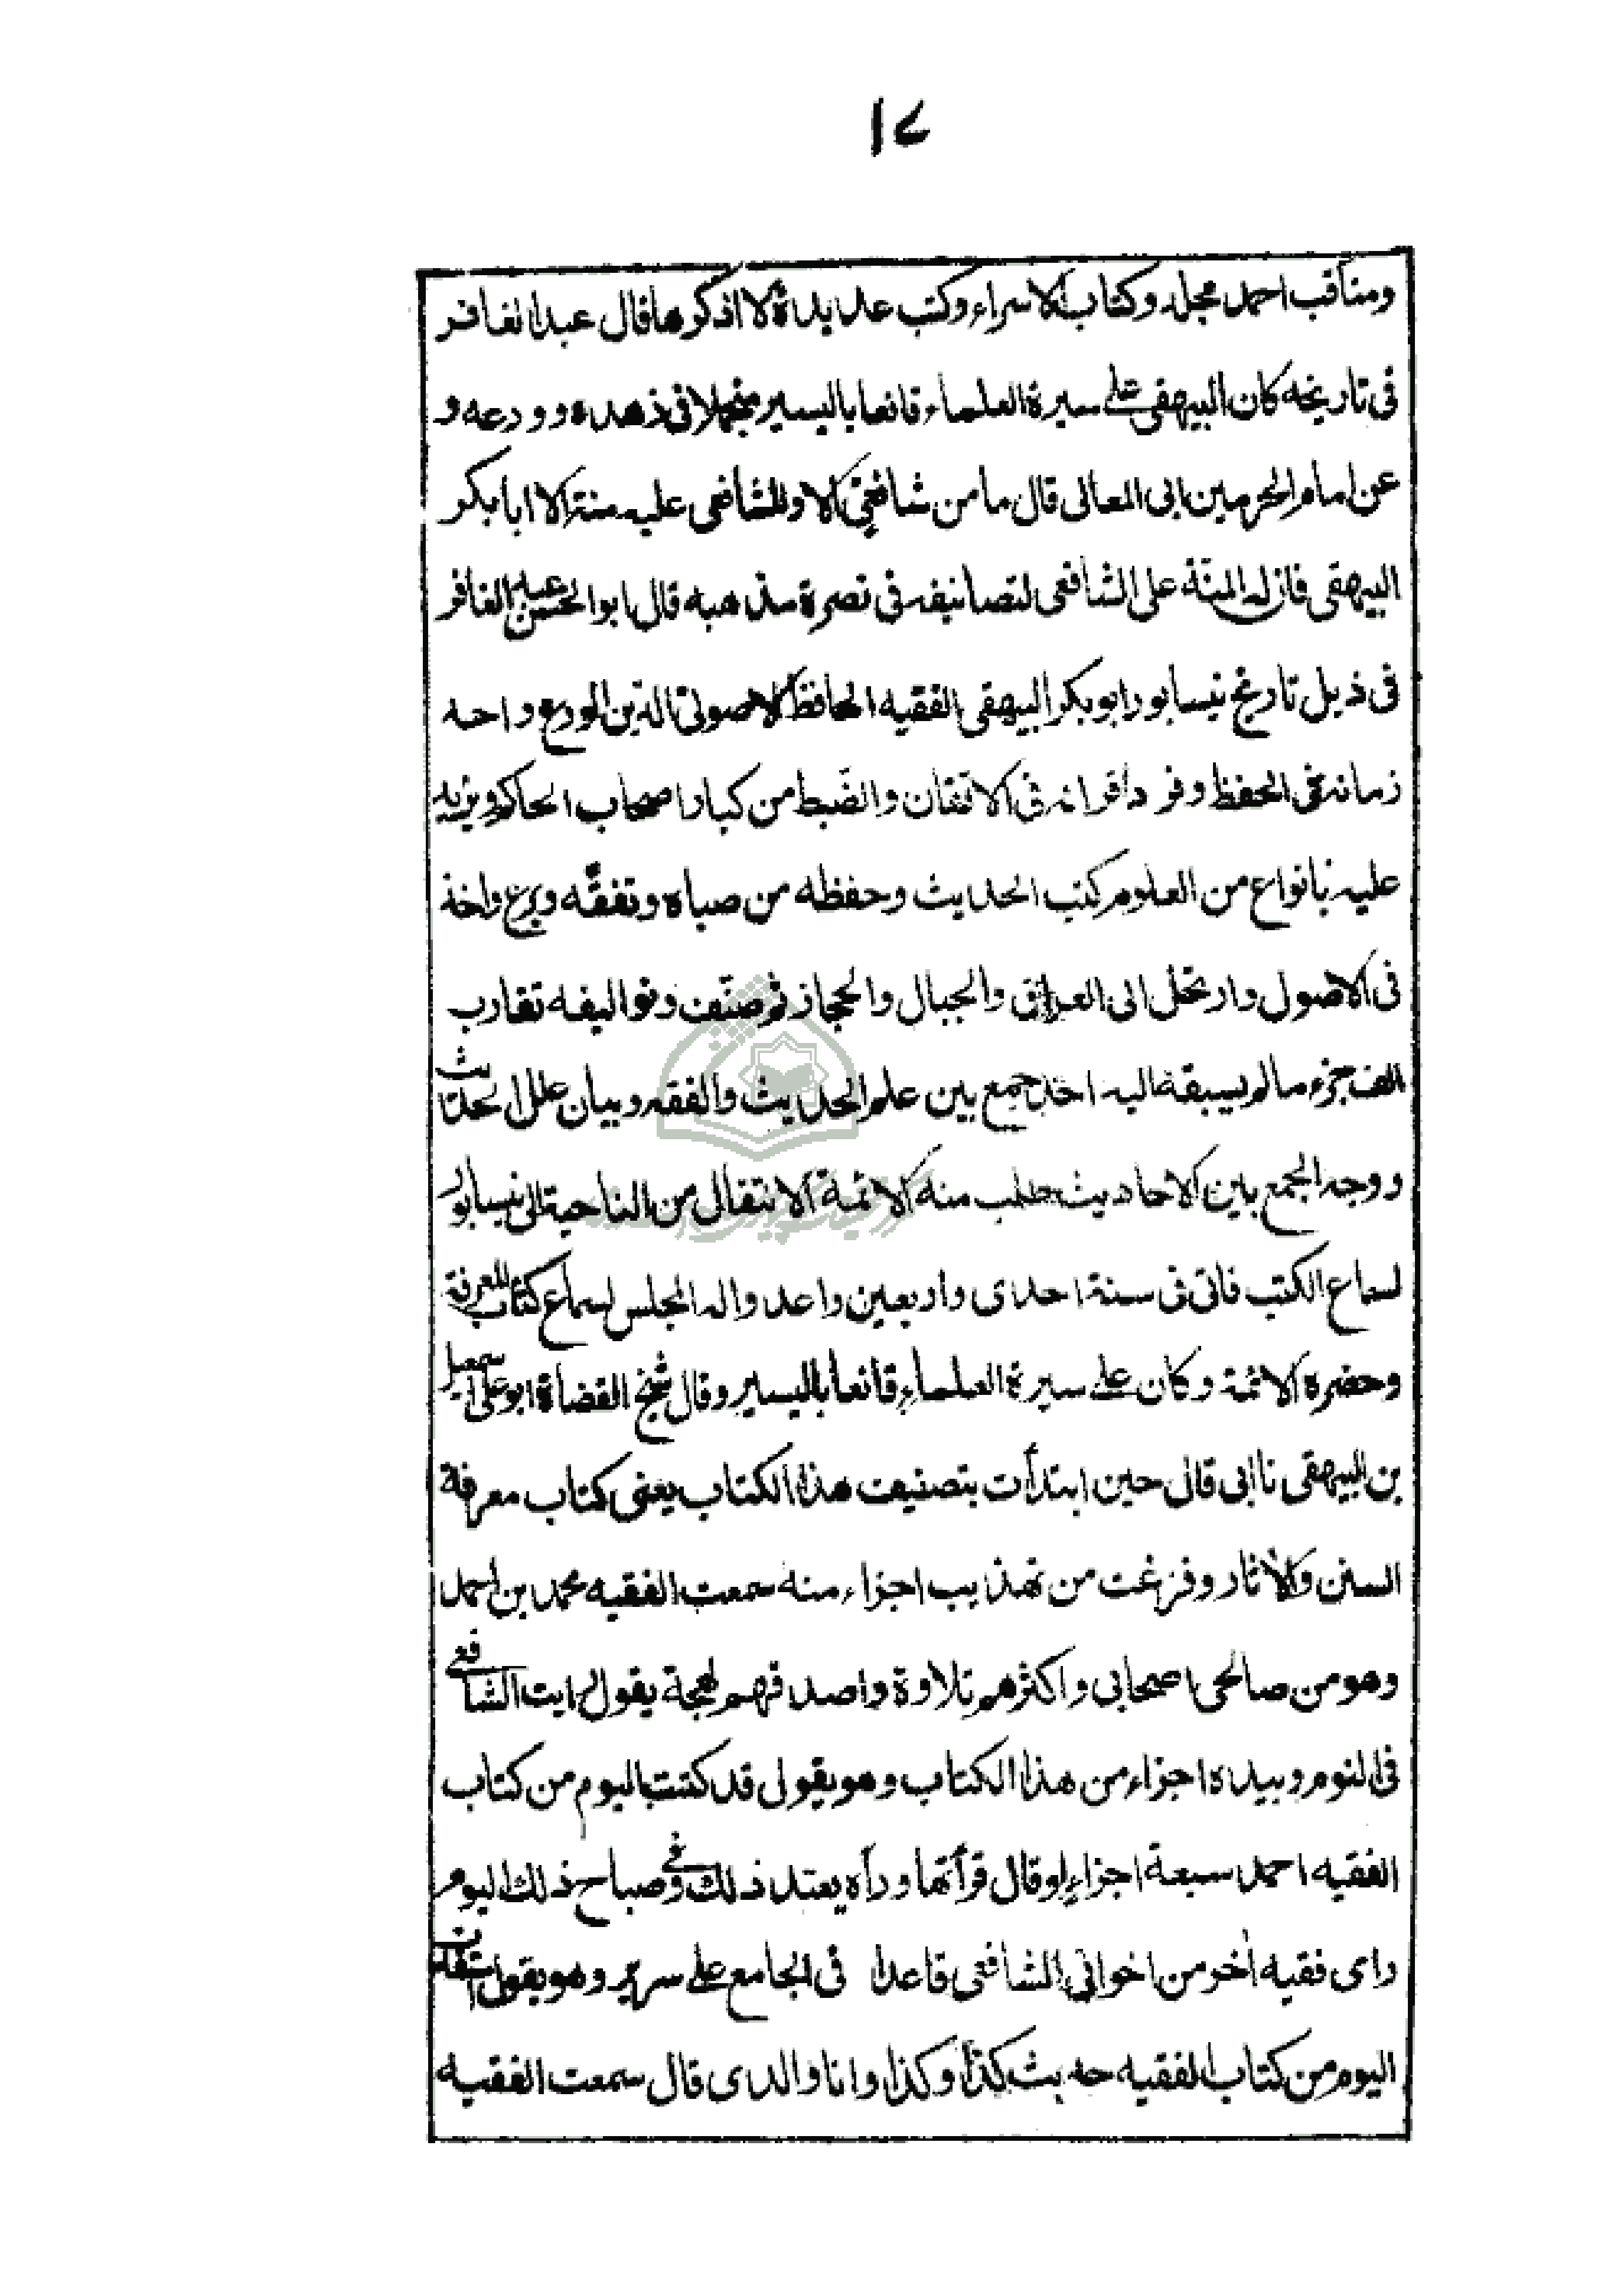 ١٧
ومناقب احمد مجلد وكتاب الاسراء وكتب عديدة لا اذكرها قال عبد الغافر
فى تاريخه كان البيهقى على سيرة العلماء قانعا باليسير متجملا فى زهده وورعه و
عن امام الحرمين ابى المعالى قال ما من شافعى الا وللشافعى عليه منة الا ابا بكر
البيهقى فان له المنة على الشافعى لتصانيفه فى نصرة مذهبه قال ابو الحسن عبد الغافر
فى ذيل تاريخ نيسابور ابو بكر البيهقى الفقيه الحافظ الاصولى الدين الورع واحد
زمانه فى الحفظ وفرد اقرانه فى الاتقان والضبط من كبار اصحاب الحاكم ويزيد
عليه بانواع من العلوم كتب الحديث وحفظه من صباه وتفقه وبرع واخذ
فى الاصول وارتحل الى العراق والجبال والحجاز ثم صنف وتواليفه تقارب
الف جزء ما لم يسبقه اليه احد جمع بين علم الحديث والفقه وبيان علل الحديث
ووجه الجمع بين الاحاديث طلب منه الائمة الانتقال من الناحية الى نيسابور
لسماع الكتب فاتى فى سنة احدى واربعين واعدوا له المجلس لسماع كتاب المعرفة
وحضره الائمة وكان على سيرة العلماء قانعا باليسير وقال شيخ القضاة ابو على اسمعيل
بن البيهقى نا ابى قال حين ابتدأت بتصنيف هذا الكتاب يعنى كتاب معرفة
السنن والاثار وفرغت من تهذيب اجزاء منه سمعت الفقيه محمد بن احمد
وهو من صالحى اصحابى واكثرهم تلاوة واصدقهم لهجة يقول رايت الشافعى
فى النوم وبيده اجزاء من هذا الكتاب وهو يقول قد كتبت اليوم من كتاب
الفقيه احمد سبعة اجزاء او قال قرأتها ورأه يعتد ذلك وفى صباح ذلك اليوم
راى فقيه اخر من اخوانى الشافعى قاعدا فى الجامع على سرير وهو يقول استفدت
اليوم من كتاب الفقيه حديث كذا وكذا وانا والدى قال سمعت الفقيه